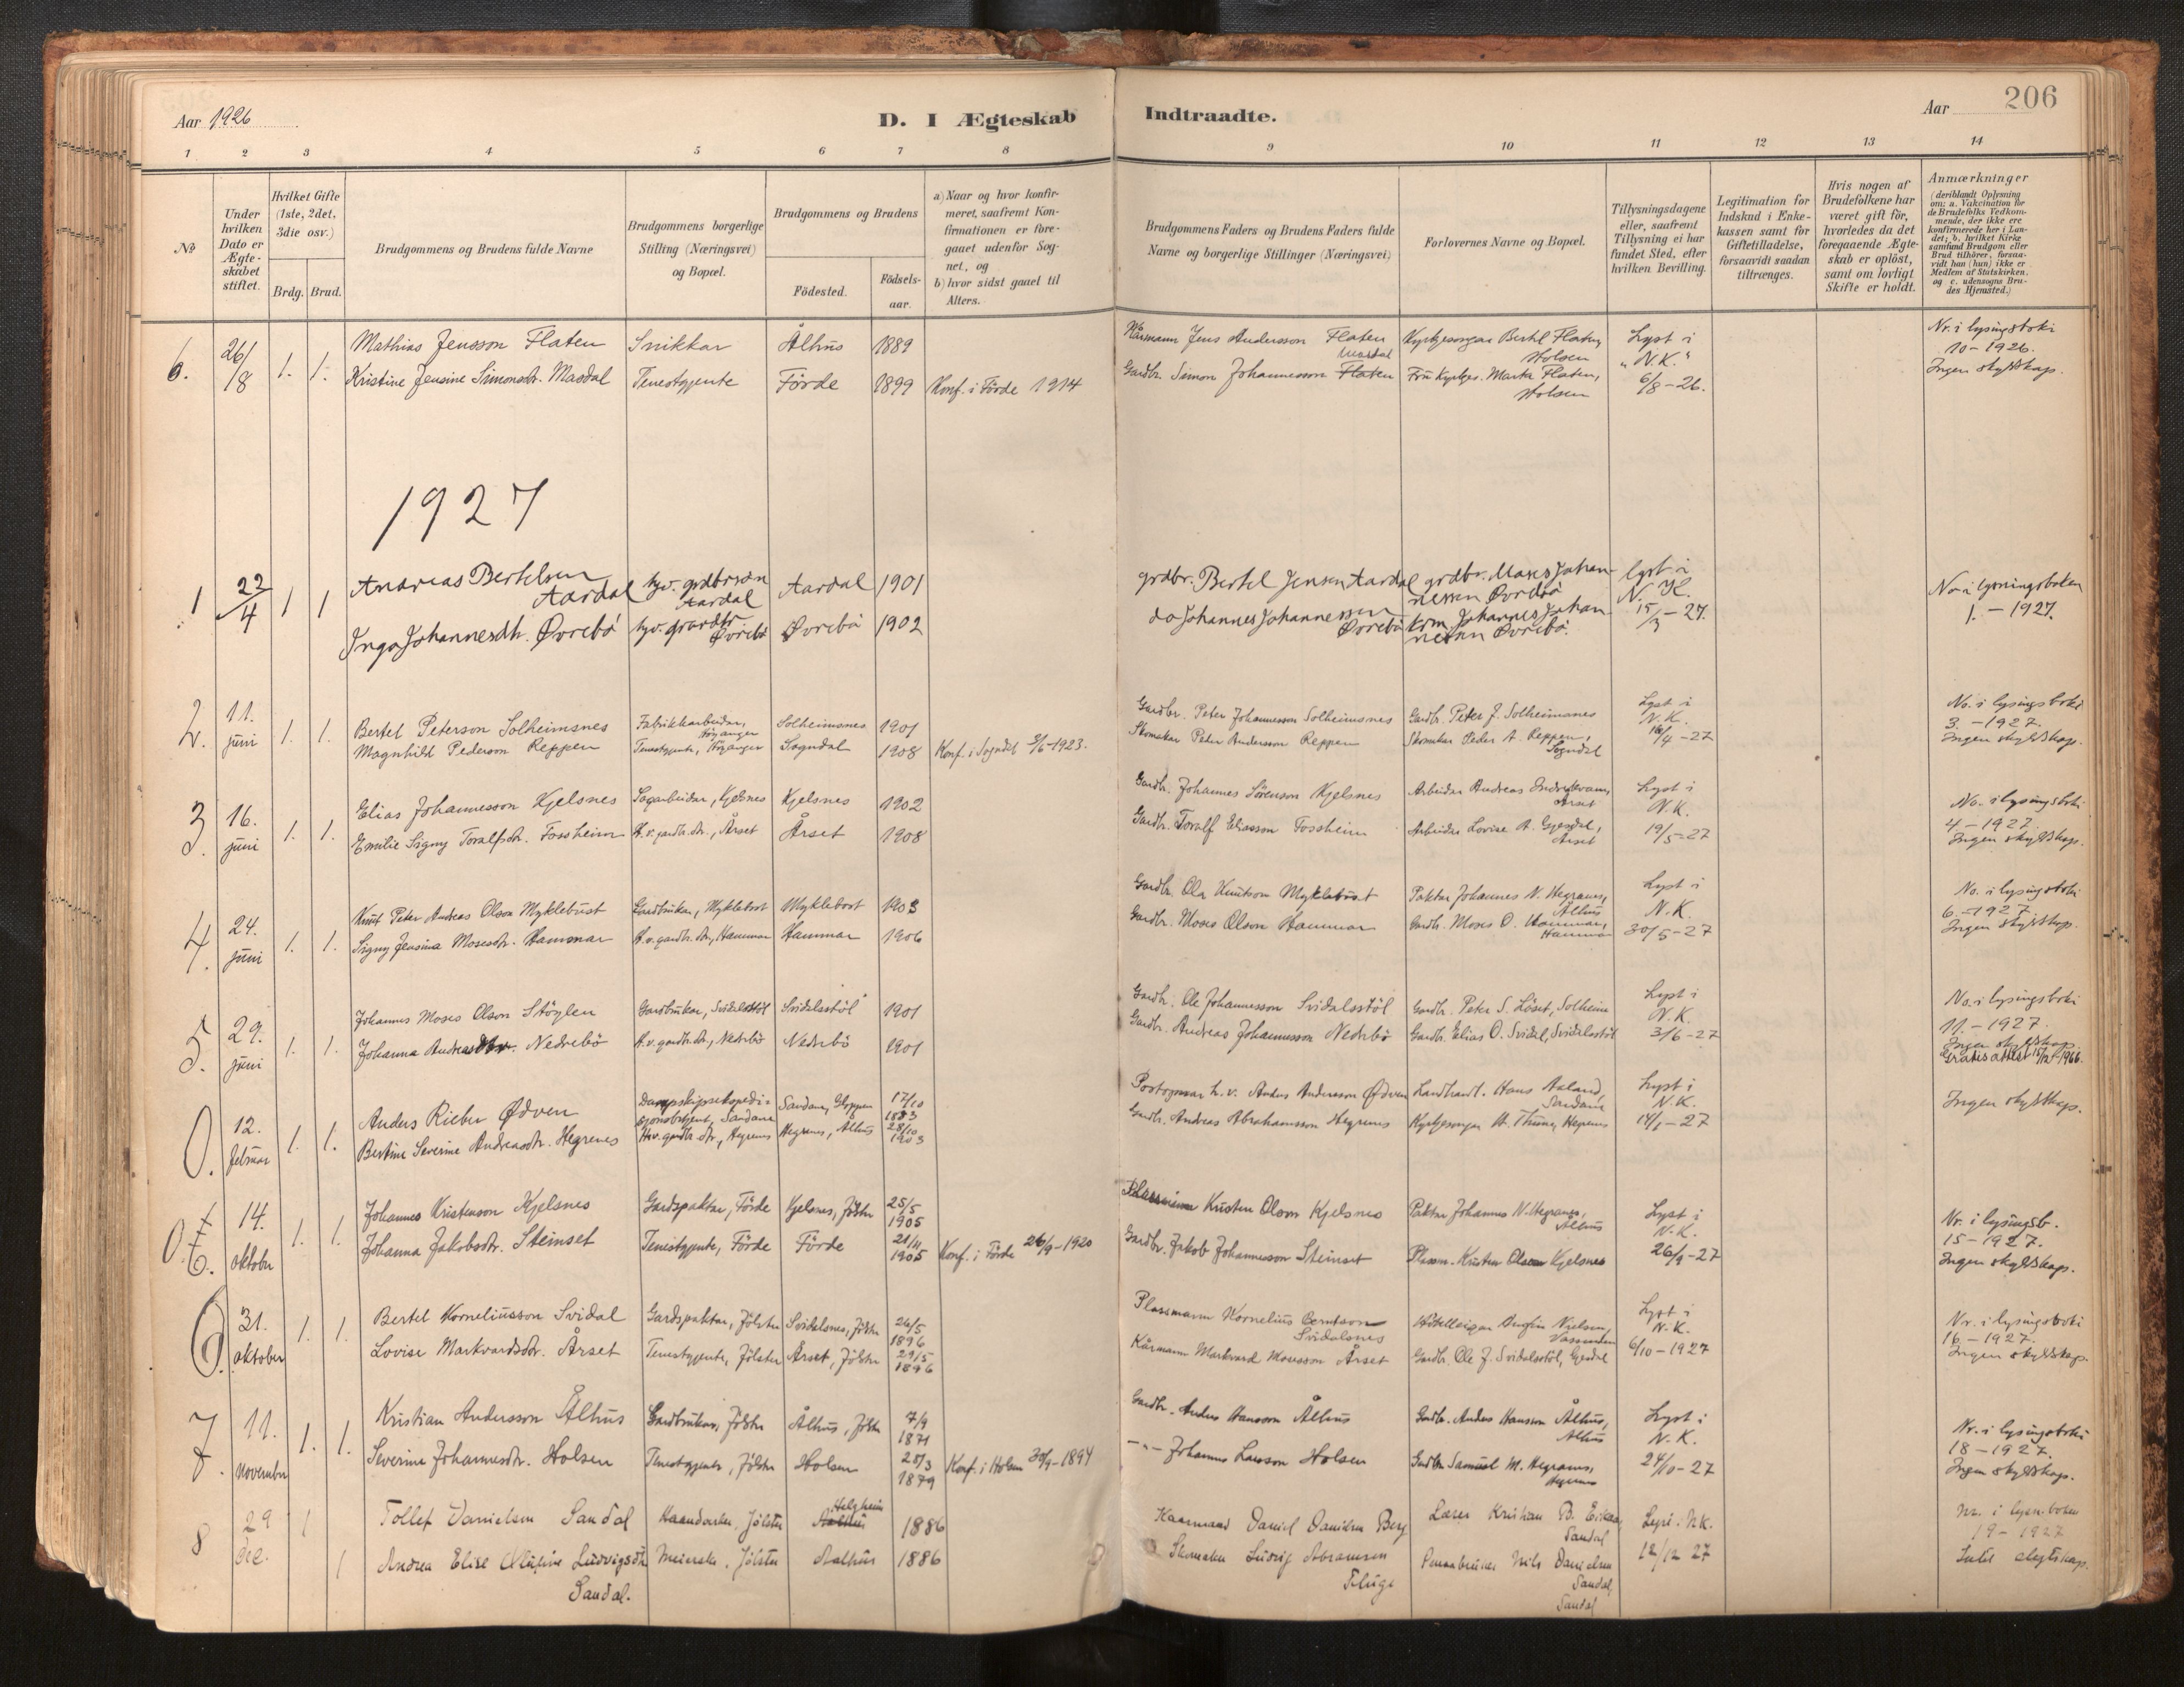 Aar 1926
D. I Ægteskab Indtraadte.
Aar
206
1 2 3 4 5 6 7 8 9 10 11 12 13 14
No
Under hvilken Dato er Ægte-skabet stiftet.
Hvilket Gifte (1ste, 2det, 3die osv.)
Brdg. Brud.
Brudgommens og Brudens fulde Navne
Brudgommens borgerlige Stilling (Næringsvei) og Bopæl.
Brudgommens og Brudens
Födested.
Födsels-aar.
a) Naar og hvor konfir-meret, saafremt Kon-firmationen er fore-gaaet udenfor Sog-net, og
b) hvor sidst gaael til Alters.
Brudgommens Faders og Brudens Faders fulde Navne og borgerlige Stillinger (Næringsvei)
Forlovernes Navne og Bopæl.
Tillysningsdagene eller, saafremt Tillysning ei har fundet Sted, efter hvilken Bevilling.
Legitimation for Indskud i Enke-kassen samt for Giftetilladelse, forsaavidt saadan tiltrænges.
Hvis nogen af Brudefolkene har været gift för, hvorledes da det foregaaende Ægte-skab er oplöst, samt om lovligt Skifte er holdt.
Anmærkninger
(deriblandt Oplysning om: a. Vakcination for de Brudefolks Vedkom-mende, der ikke ere konfirmerede her i Lan-det; b. hvilket Kirke samfund Brudgom eller Brud tilhörer, forsaa-vidt han (hun) ikke er Medlem af Statskirken. og c. udensogns Bru-des Hjemsted.)
6. 26/8 1. 1. Mathias Jensson Flaten Snikkar Ålhus 1889 Kårmann Jens Andersson Flaten Kyrkjesongar Bertel Flaten, Holsen Lyst i "N.K." 6/8-26. Nr. i lysingsboki 10-1926. Ingen skyldskap.
Kristine Jensine Simonsdr. Masdal Tenestgjente Förde 1899 Konf. i Förde 1914 Gardbr. Simon Johannesson Flaten Masdal Fru Kyrkjes. Marta Flaten, Holsen
1927
1 22/4 1 1 Andreas Bertelsen Aardal hjv. grdbrsøn Aardal Aardal 1901 grdbr. Bertel Jensen Aardal grdbr. Moses Johannessen Øvrebö lyst i N. K. 15/3-27. No i lysningsboken 1.-1927.
Inga Johannesdtr. Øvrebö hjv. grdbr. Øvrebö Øvrebö 1902 do Johannes Johannessen Øvrebö Johannes Johannessen Øvrebö.
2. 11. juni 1. 1. Bertel Peterson Solheimsnes Fabrikkarbeidar, Höyanger Solheimsnes 1901 Gardbr. Peter Johannesson Solheimsnes Gardbr. Peter J. Solheimsnes Lyst i N.K. 16/4-27 No. i lysingsboki 3-1927. Ingen skyldskap.
Magnhild Pederson Reppen Tenestgjente, Höyanger Sogndal 1908 Konf. i Sogndal 3/6-1923. Skomakar Peder Andersson Reppen Skomakar Peder A. Reppen, Sogndal
3. 16. juni 1. 1. Elias Johannesson Kjelsnes Sagarbeidar, Kjelsnes Kjelsnes 1902 Gardbr. Johannes Sörenson Kjelsnes Arbeidar Andreas Indrekvam, Årset Lyst i N.K. 19/5-27 No. i lysingsboki 4-1927. Ingen skyldskap.
Emilie Signy Toralfsdr. Fossheim H.v. gardbr. dr., Årset Årset 1908 Gardbr. Toralf Eliasson Fossheim Arbeidar Lovise A. Gjesdal, Årset
4. 24. juni 1. 1. Knut Peter Andreas Olson Myklebust Gardbrukar, Myklebost Myklebost 1903 Gardbr. Ola Knutson Myklebust Paktar Johannes N. Hegrenes, Ålhus Lyst i N.K. 30/5-27 No. i lysingsboki 6.-1927. Ingen skyldskap.
Signy Jensina Mosesdr. Hammar H.v. gardbr. dr., Hammar Hammar 1906 Gardbr. Moses Olson Hammar Gardbr. Moses O. Hammar, Hammar
5. 29. juni 1. 1. Johannes Moses Olson Stöylen Gardbrukar, Svidalsstöl Svidalsstöl 1901 Gardbr. Ole Johannesson Svidalsstöl Gardbr. Peter S. Löset, Solheim Lyst i N.K. 3/6-27 No. i lysingsboki 11.-1927. Ingen skyldskap. Gratis attest 15/12-1966.
Johanna Andreasdtr. Nedrebö H.v. gardbr. dr., Nedrebö Nedrebö 1901 Gardbr. Andreas Johannesson Nedrebö Gardbr. Elias O. Svidal, Svidalsstöl
0. 12. februar 1. 1. Anders Rieber Ødven Dampskipsekspedi-sjonsbetjent, Sandane Sandane, Gloppen 17/10 1883 Anders Andersson Ødven Landhandl. Hans Aaland, Sandane Lyst i N.K. 14/1-27 Ingen skyldskap.
Bertine Severine Andreasdr. Hegrenes H.v. gardbr. dr., Hegrenes Hegrenes, Ålhus 28/10 1903 Gardbr. Andreas Abrahamsson Hegrenes Kyrkjesongar A. Thune, Hegrenes
0. 6. 14. oktober 1. 1. Johannes Kristenson Kjelsnes Gardspaktar, Förde Kjelsnes, Jölster 25/5 1905 Plassmann Kristen Olson Kjelsnes Paktar Johannes N. Hegrenes, Ålhus Lyst i N.K. 26/9-27 Nr. i lysingsb. 15-1927. Ingen skyldskap.
Johanna Jakobsdr. Steinset Tenestgjente, Förde Förde 21/11 1905 Konf. i Förde 26/9-1920 Gardbr. Jakob Johannesson Steinset Plassm. Kristen Olsen Kjelsnes
6. 31. oktober 1. 1. Bertel Korneliusson Svidal Gardspaktar, Jölster Svidalsnes, Jölster 26/5 1896 Plassmann Kornelius Berntson Svidalsnes Hotelleigar Nielsen, Vassenden Lyst i N.K. 6/10-1927 Nr. i lysingsboki 16-1927. Ingen skyldskap.
Lovise Markvardsdr. Årset Tenestgjente, Jölster Årset, Jölster 29/5 1896 Kårmann Markvard Mosesson Årset Gardbr. Ole J. Svidalsstöl, Gjesdal
7. 11. november 1. 1. Kristian Andersson Ålhus Gardbrukar, Jölster Ålhus, Jölster 7/9 1871 Gardbr. Anders Hansson Ålhus Gardbr. Anders Hansson Ålhus, Ålhus Lyst i N.K. 24/10-27 Nr. i lysingsboki 18-1927. Ingen skyldskap.
Severine Johannesdr. Holsen Tenestgjente, Jölster Holsen 25/3 1879 Konf. i Holsen 30/9-1894 -"- Johannes Larsson Holsen Gardbr. Samuel M. Hegrenes, Hegrenes
8 29 Dec. 1 Tollef Danielsen Sandal Haandverker, Jølster Helgheim Aalhus 1886 Kaarmand Daniel Danielsen Berg Lærer Kristian B. Eikaas, Sandal Lyst i N.K. 12/12 27 Nr. i lysn.boken 19-1927 Intet slegtskap.
1 Andrea Elise Ludvigsdtr. Sandal. Meierske, Jølster Aalhus 1886 Skomaker Ludvig Abramsen Fluge Nils Danielsen Sandal, Sandal